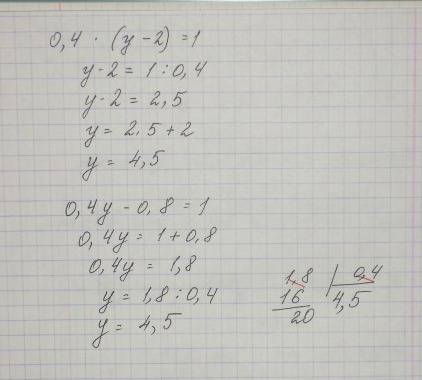 0,4 · (y - 2) = 1
y - 2 = 1 : 0,4
y - 2 = 2,5
y = 2,5 + 2
y = 4,5
0,4y - 0,8 = 1
0,4y = 1 + 0,8
0,4y = 1,8
y = 1,8 : 0,4
y = 4,5
1,8 | 0,4
16 | 4,5
20